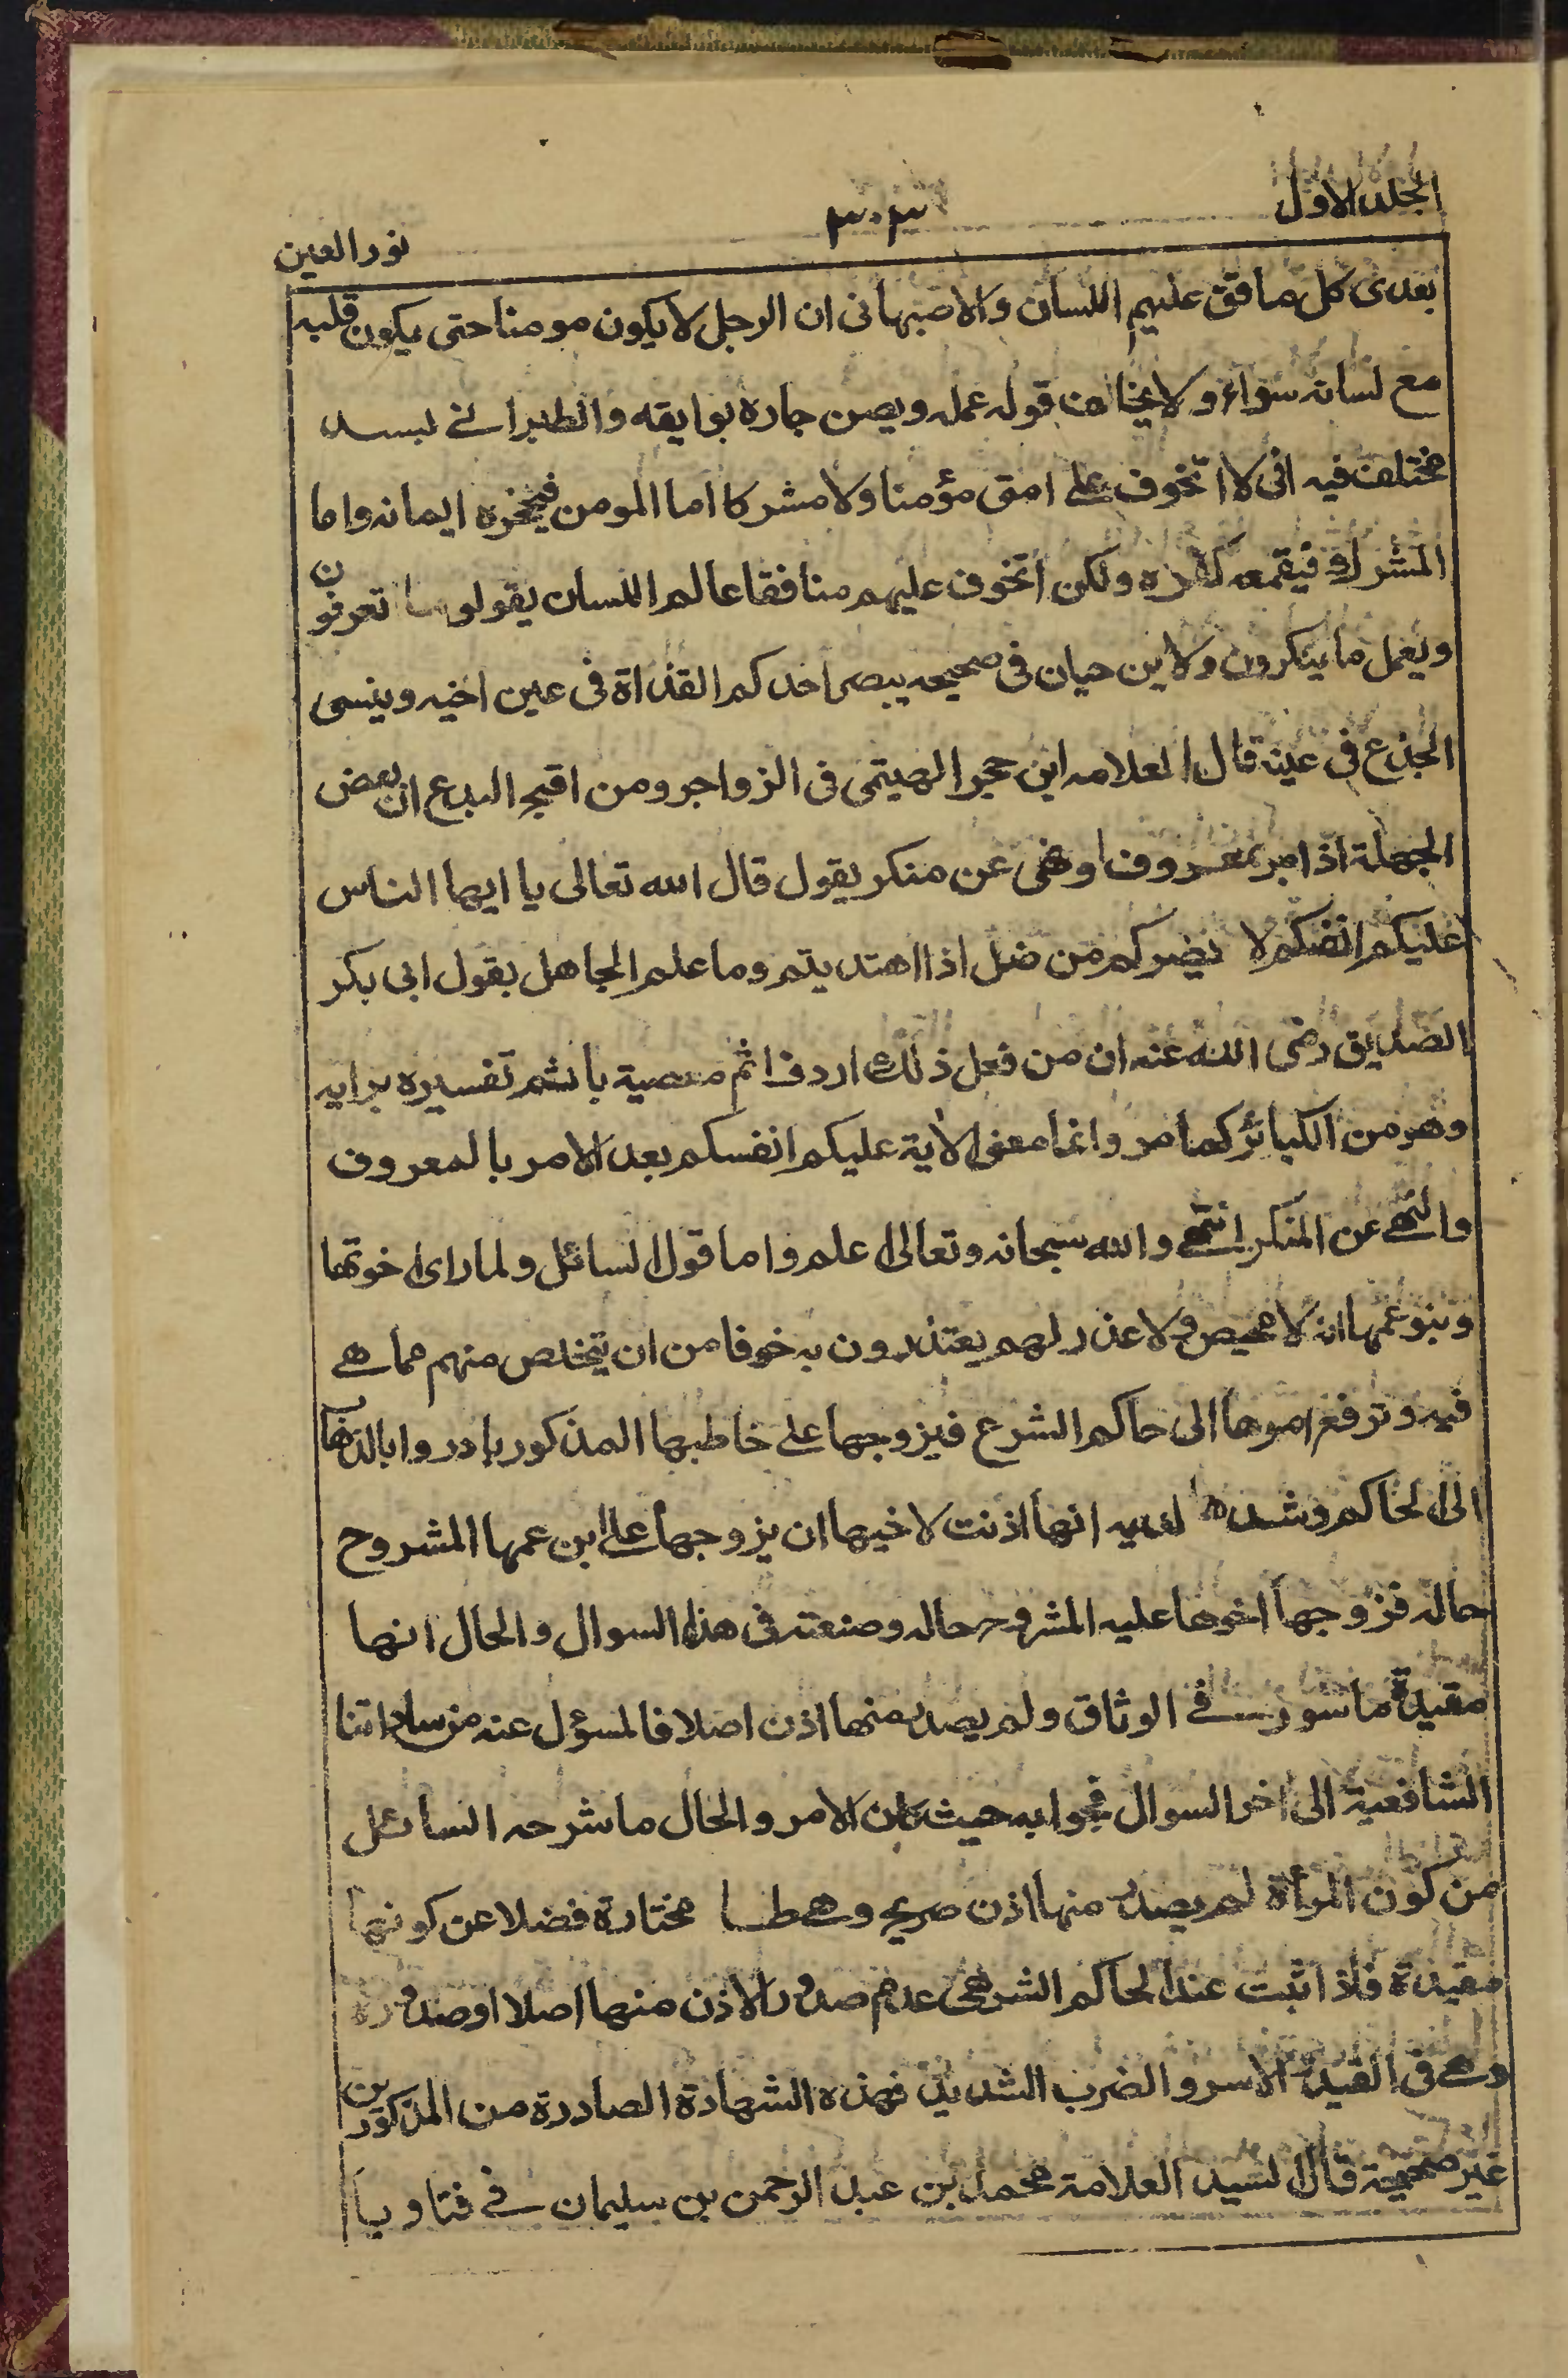 الجلد الاول
٣٠٣
نور العين
بعدى كل منافق عليم اللسان والاصبهانى ان الرجل لا يكون مومنا حتى يكون قلبه
مع لسانه سواء ولا يخالف قوله عمله ويصن جاره بوايقه والطبرانے بسند
مختلف فيه انى لا اتخوف على امتى مؤمنا ولا مشركا اما المومن فيحجزه ايمانه واما
المشرك فيقمعه كفره ولكن اتخوف عليهم منافقا عالم اللسان يقول ما تعرفون
ويعمل ما ينكرون ولابن حبان فى صحيحه يبصر احدكم القذاة فى عين اخيه وينسى
الجذع فى عينه قال العلامه ابن حجر الهيتمى فى الزواجر ومن اقبح البدع ان بعض
الجهلة اذا امر بمعروف او نهى عن منكر يقول قال الله تعالى يا ايها الناس
عليكم انفسكم لا يضركم من ضل اذا اهتديتم وما علم الجاهل بقول ابى بكر
الصديق رضى الله عنه ان من فعل ذلك اردف اثم معصية باثم تفسيره برايه
وهو من الكبائر كما مر وانما معنى الاية عليكم انفسكم بعد الامر بالمعروف
والنهے عن المنكر انتهے والله سبحانه وتعالى اعلم واما قول السائل ولما راى اخوتها
وبنو عمها انه لا محيص ولا عذر لهم يعتذرون به خوفا من ان تتخلص منهم مما هے
فيه وترفع امرها الى حاكم الشرع فيزوجها على خاطبها المذكور بادروا بالذهاب
الى الحاكم وشهدوا لديه انها اذنت لاخيها ان يزوجها على ابن عمها المشروح
حاله فزوجها اخوها عليه المشروح حاله وصنعته فى هذا السوال والحال انها
مقيدة ماسورة فے الوثاق ولم يصدر منها اذن اصلا فالمسؤل عنه من ساداتنا
الشافعية الى اخر السوال فجوابه حيث كان الامر والحال ما شرحه السائل
من كون المرأة لم يصدر منها اذن صريح وهے مختارة فضلا عن كونها
مقيدة فاذا ثبت عند الحاكم الشرعى عدم صدور الاذن منها اصلا او صدوره
وهے فى القيد والاسر والضرب الشديد فهذه الشهادة الصادرة من المذكورين
غير صحيحة قال السيد العلامة محمد بن عبد الرحمن بن سليمان فے فتاويه